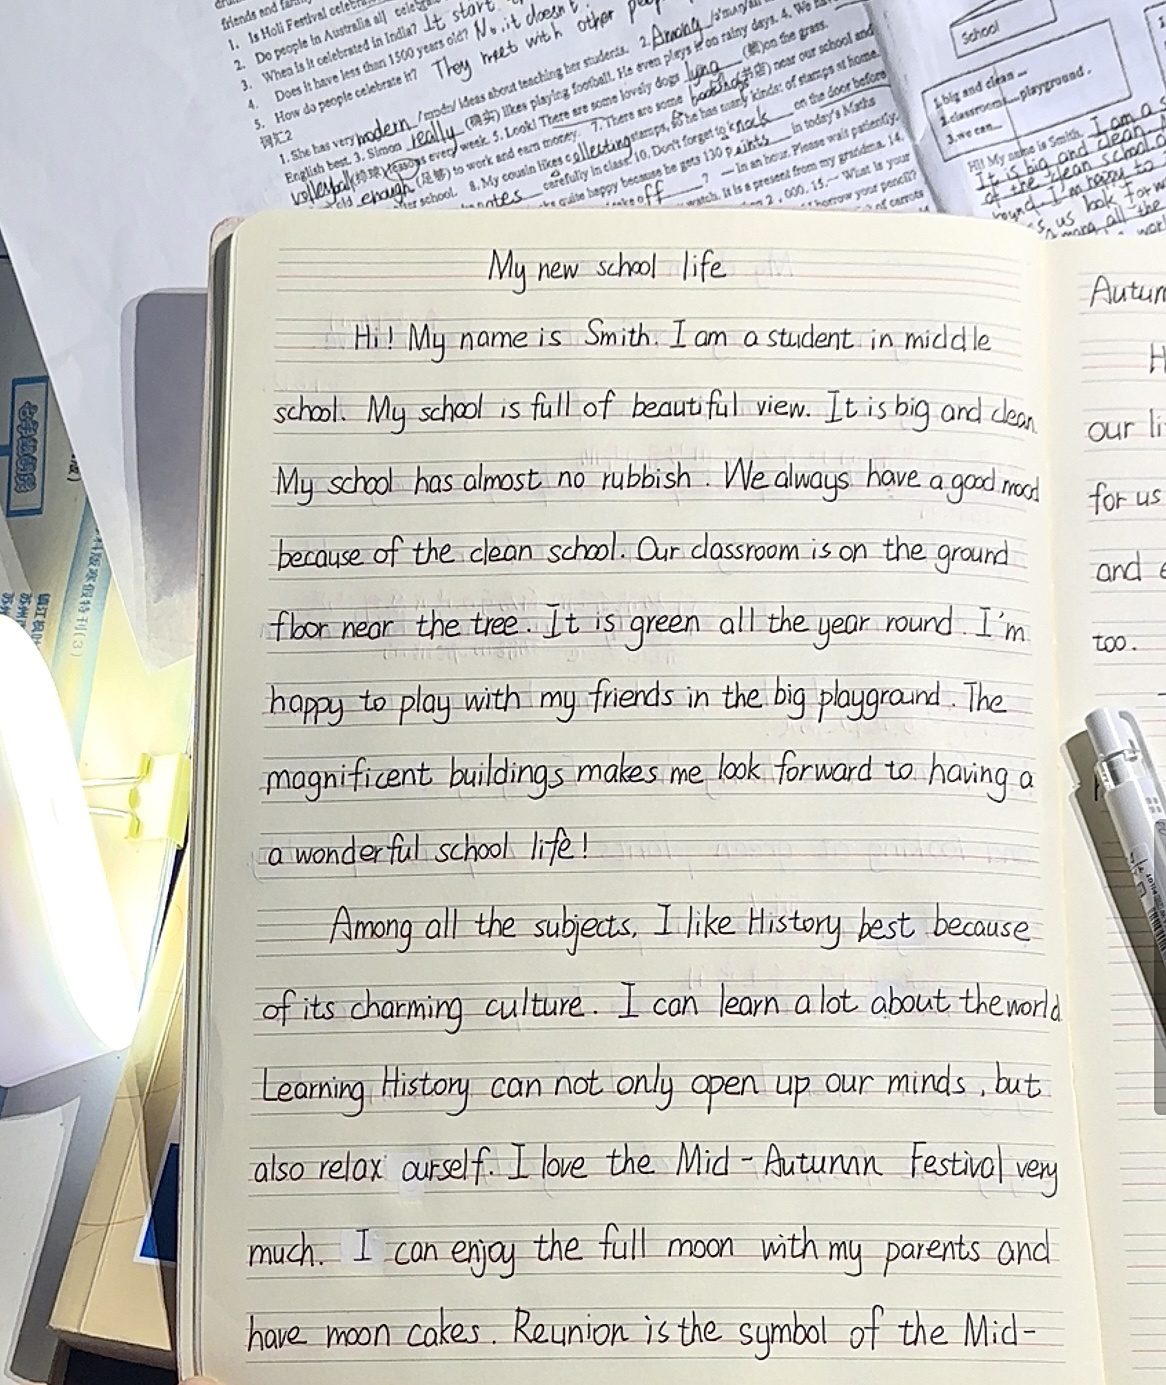 friends and
1. Is Holi Festival
2. Do people in Australia all
3. When is it celebrated in India? It start
4. Does it have less than 1500 years old? No, it doesn't
5. How do people celebrate it? They meet with other
词汇2
1. She has very modern /'mɒdn/ ideas about teaching her students. 2. Among
English best. 3. Simon really (确实) likes playing football. He even plays it on rainy days. 4. We
volleyball (排球) lessons every week. 5. Look! There are some lovely dogs lying (躺) on the grass.
old enough (足够) to work and earn money. 7. There are some bookshops (书店) near our school and
school. 8. My cousin likes collecting stamps, so he has many kinds of stamps at home.
notes carefully in class. 10. Don't forget to knock on the door before
quite happy because he gets 130 points in today's Maths
off ? — In an hour. Please wait patiently.
watch. It is a present from my grandma. 14.
2,000. 15.— What is your
borrow your pencil?
of carrots
School
1. big and clean ...
2. classroom ... playground.
3. we can...
Hi! My name is Smith. I am a
It is big and clean
of the clean school
round. I'm happy to
us look for
Among all the
My new school life
Hi! My name is Smith. I am a student in middle
school. My school is full of beautiful view. It is big and clean
My school has almost no rubbish. We always have a good mood
because of the clean school. Our classroom is on the ground
floor near the tree. It is green all the year round. I'm
happy to play with my friends in the big playground. The
magnificent buildings makes me look forward to having a
a wonderful school life!
Among all the subjects, I like History best because
of its charming culture. I can learn a lot about the world
Learning History can not only open up our minds, but
also relax ourself. I love the Mid-Autumn Festival very
much. I can enjoy the full moon with my parents and
have moon cakes. Reunion is the symbol of the Mid-
Autum
H
our li
for us
and
too.